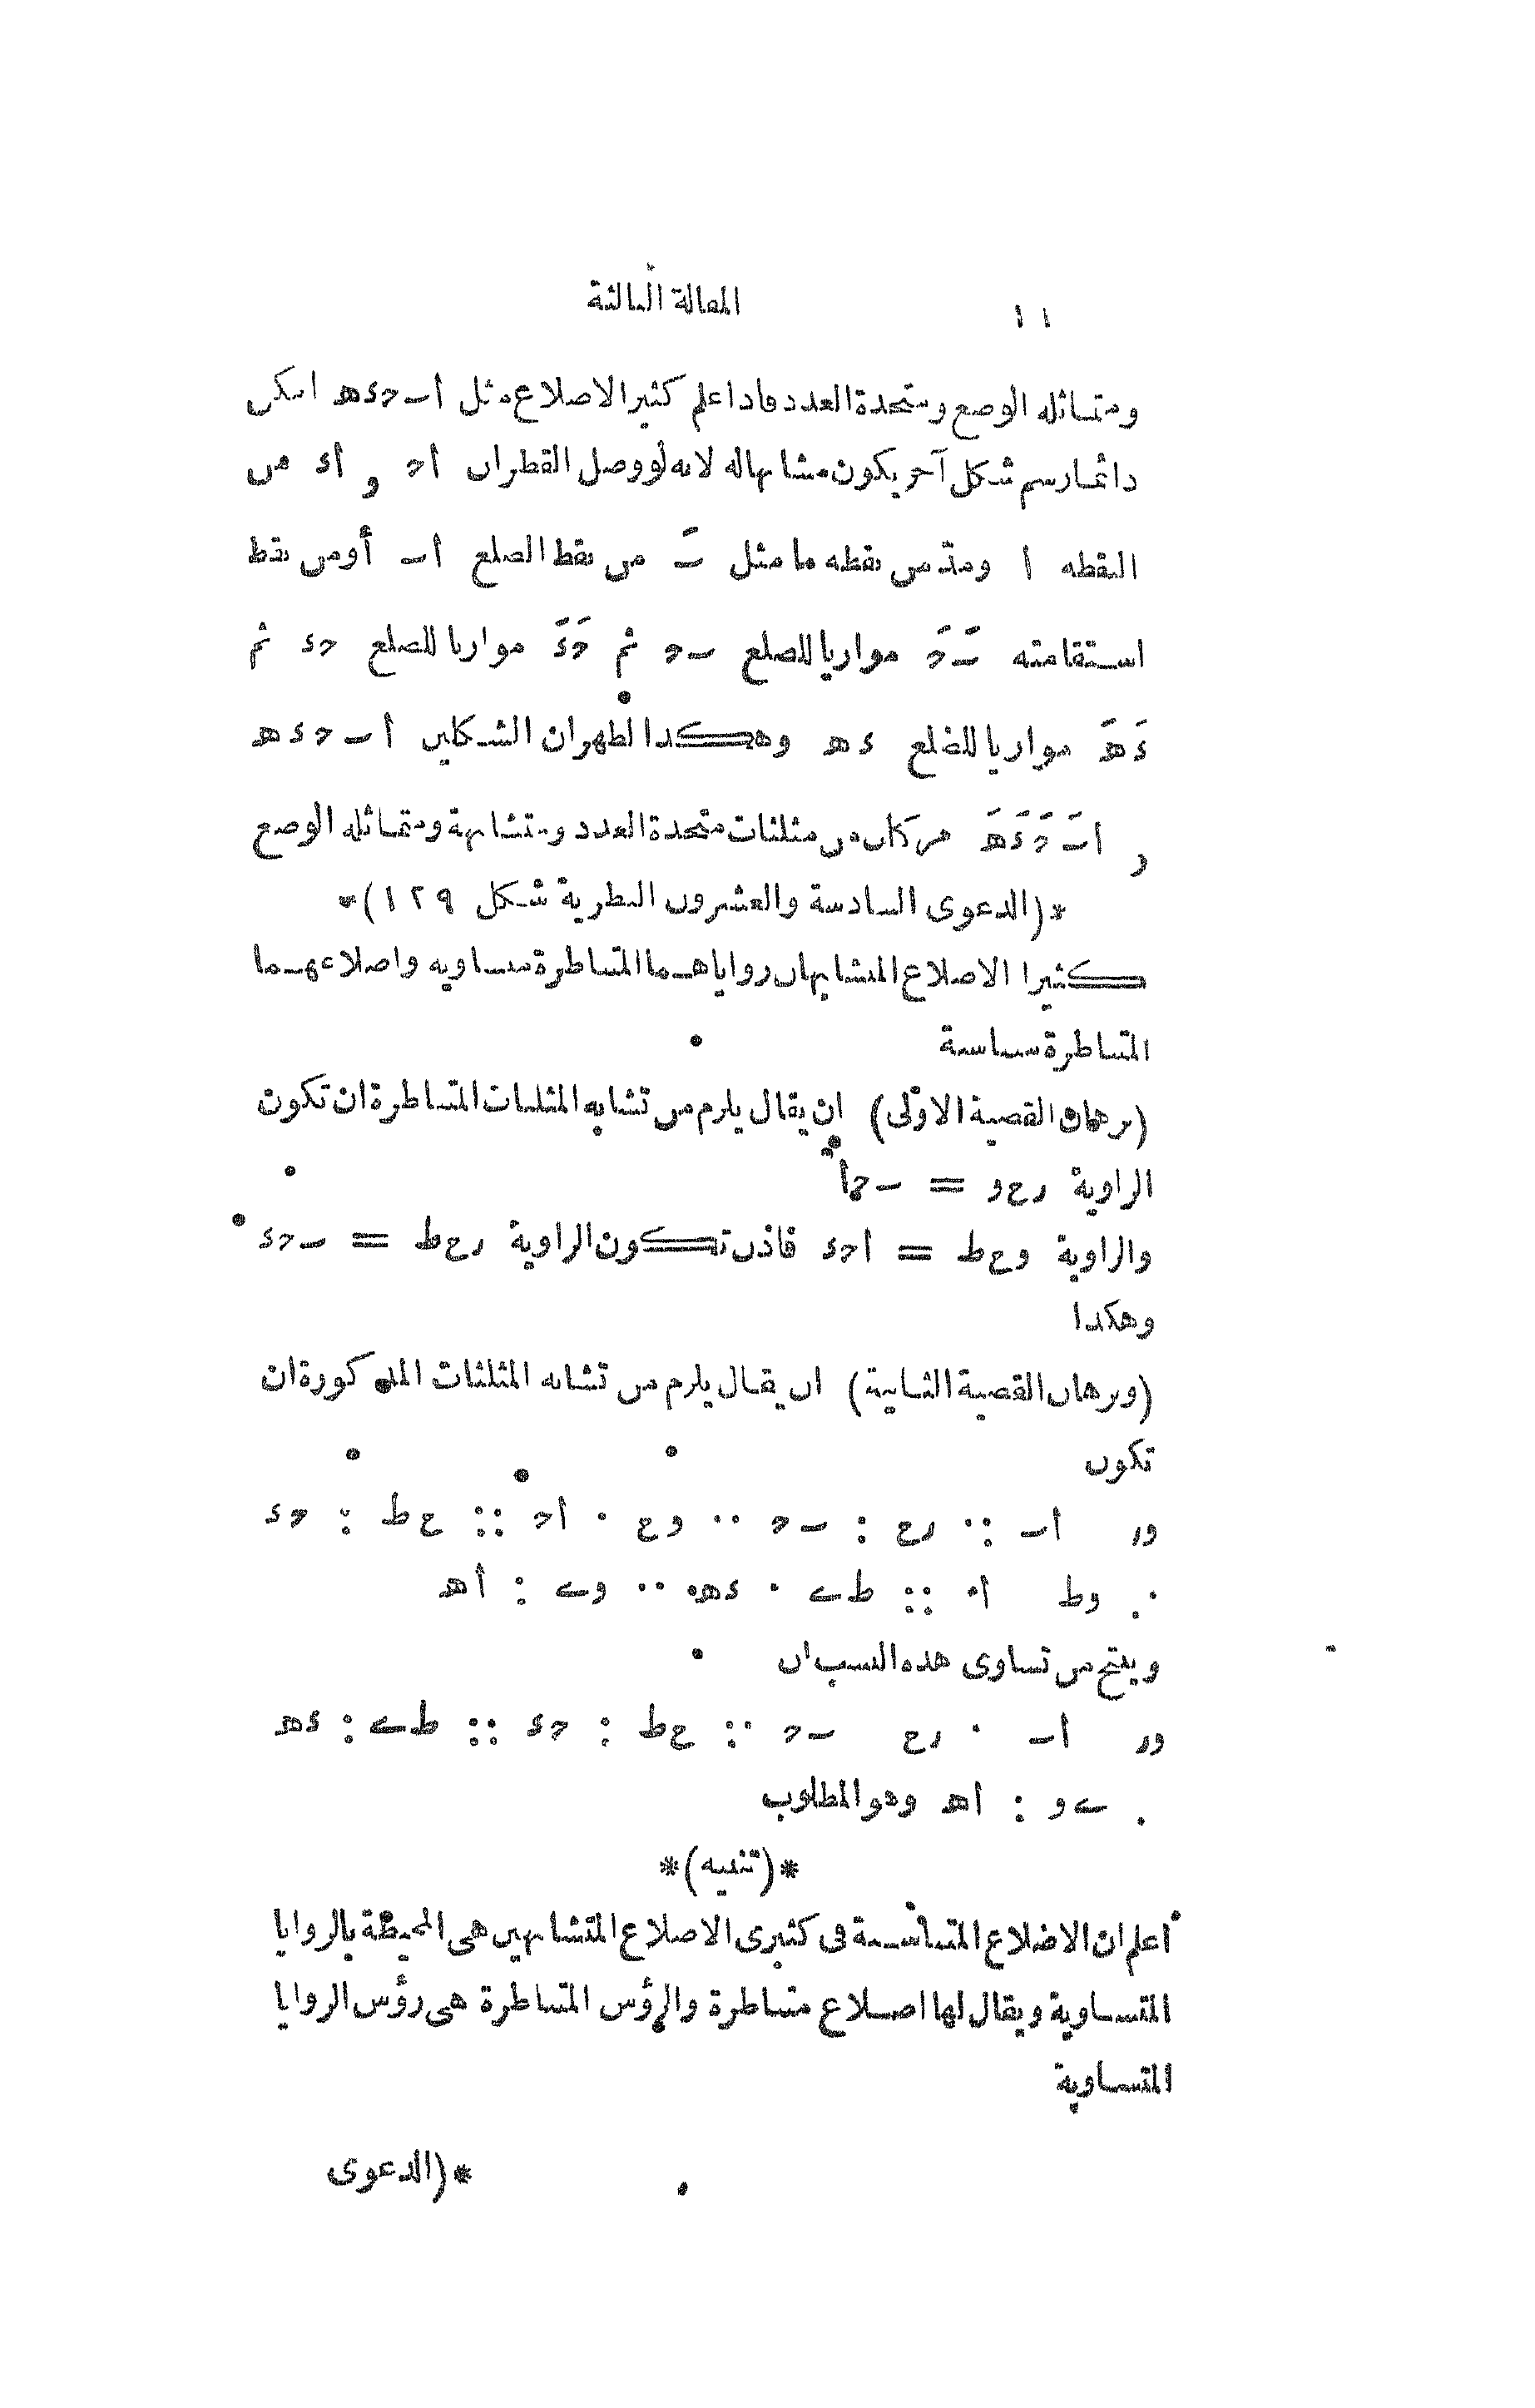 ١١ المقالة الثالثة
ومتماثلة الوضع ومتحدة العدد فاذا علم كثير الاضلاع مثل أ ب ج د ه امكن
دائما رسم شكل آخر يكون مشابها له لانه لو وصل القطران أ ج و أ د من
النقطة ا ومدّ من نقطة ما مثل بَ من نقط الضلع أ ب أو من نقط
استقامته بَ جَ موازيا للضلع ب ج ثم جَ دَ موازيا للضلع ج د ثم
دَ هَ موازيا للضلع د ه وهكذا لظهر ان الشكلين أ ب ج د ه
و أ بَ جَ دَ هَ مركبان من مثلثات متحدة العدد ومتشابهة ومتماثلة الوضع
*(الدعوى السادسة والعشرون النظرية شكل ١٢٩)*
كثيرا الاضلاع المتشابهان زواياهما المتناظرة متساوية واضلاعهما
المتناظرة متناسبة
(برهان القضية الاولى) ان يقال يلزم من تشابه المثلثات المتناظرة ان تكون
الزاوية ز ح و = ب ج أ
والزاوية و ح ط = ا ج د فاذن تكون الزاوية ز ح ط = ب ج د
وهكذا
(وبرهان القضية الثانية) ان يقال يلزم من تشابه المثلثات المذكورة ان
تكون
و ز : أ ب :: ز ح : ب ج :: و ح : أ ج :: ح ط : ج د
:: و ط : أ د :: ط ى : د ه :: و ى : أ ه
وينتج من تساوى هذه النسب ان
و ز : أ ب :: ز ح : ب ج :: ح ط : ج د :: ط ى : د ه
:: ى و : أ ه وهو المطلوب
*(تنبيه)*
اعلم ان الاضلاع المتناسبة فى كثيرى الاضلاع المتشابهين هى المحيطة بالزوايا
المتساوية ويقال لها اضلاع متناظرة والرؤس المتناظرة هى رؤس الزوايا
المتساوية
*(الدعوى